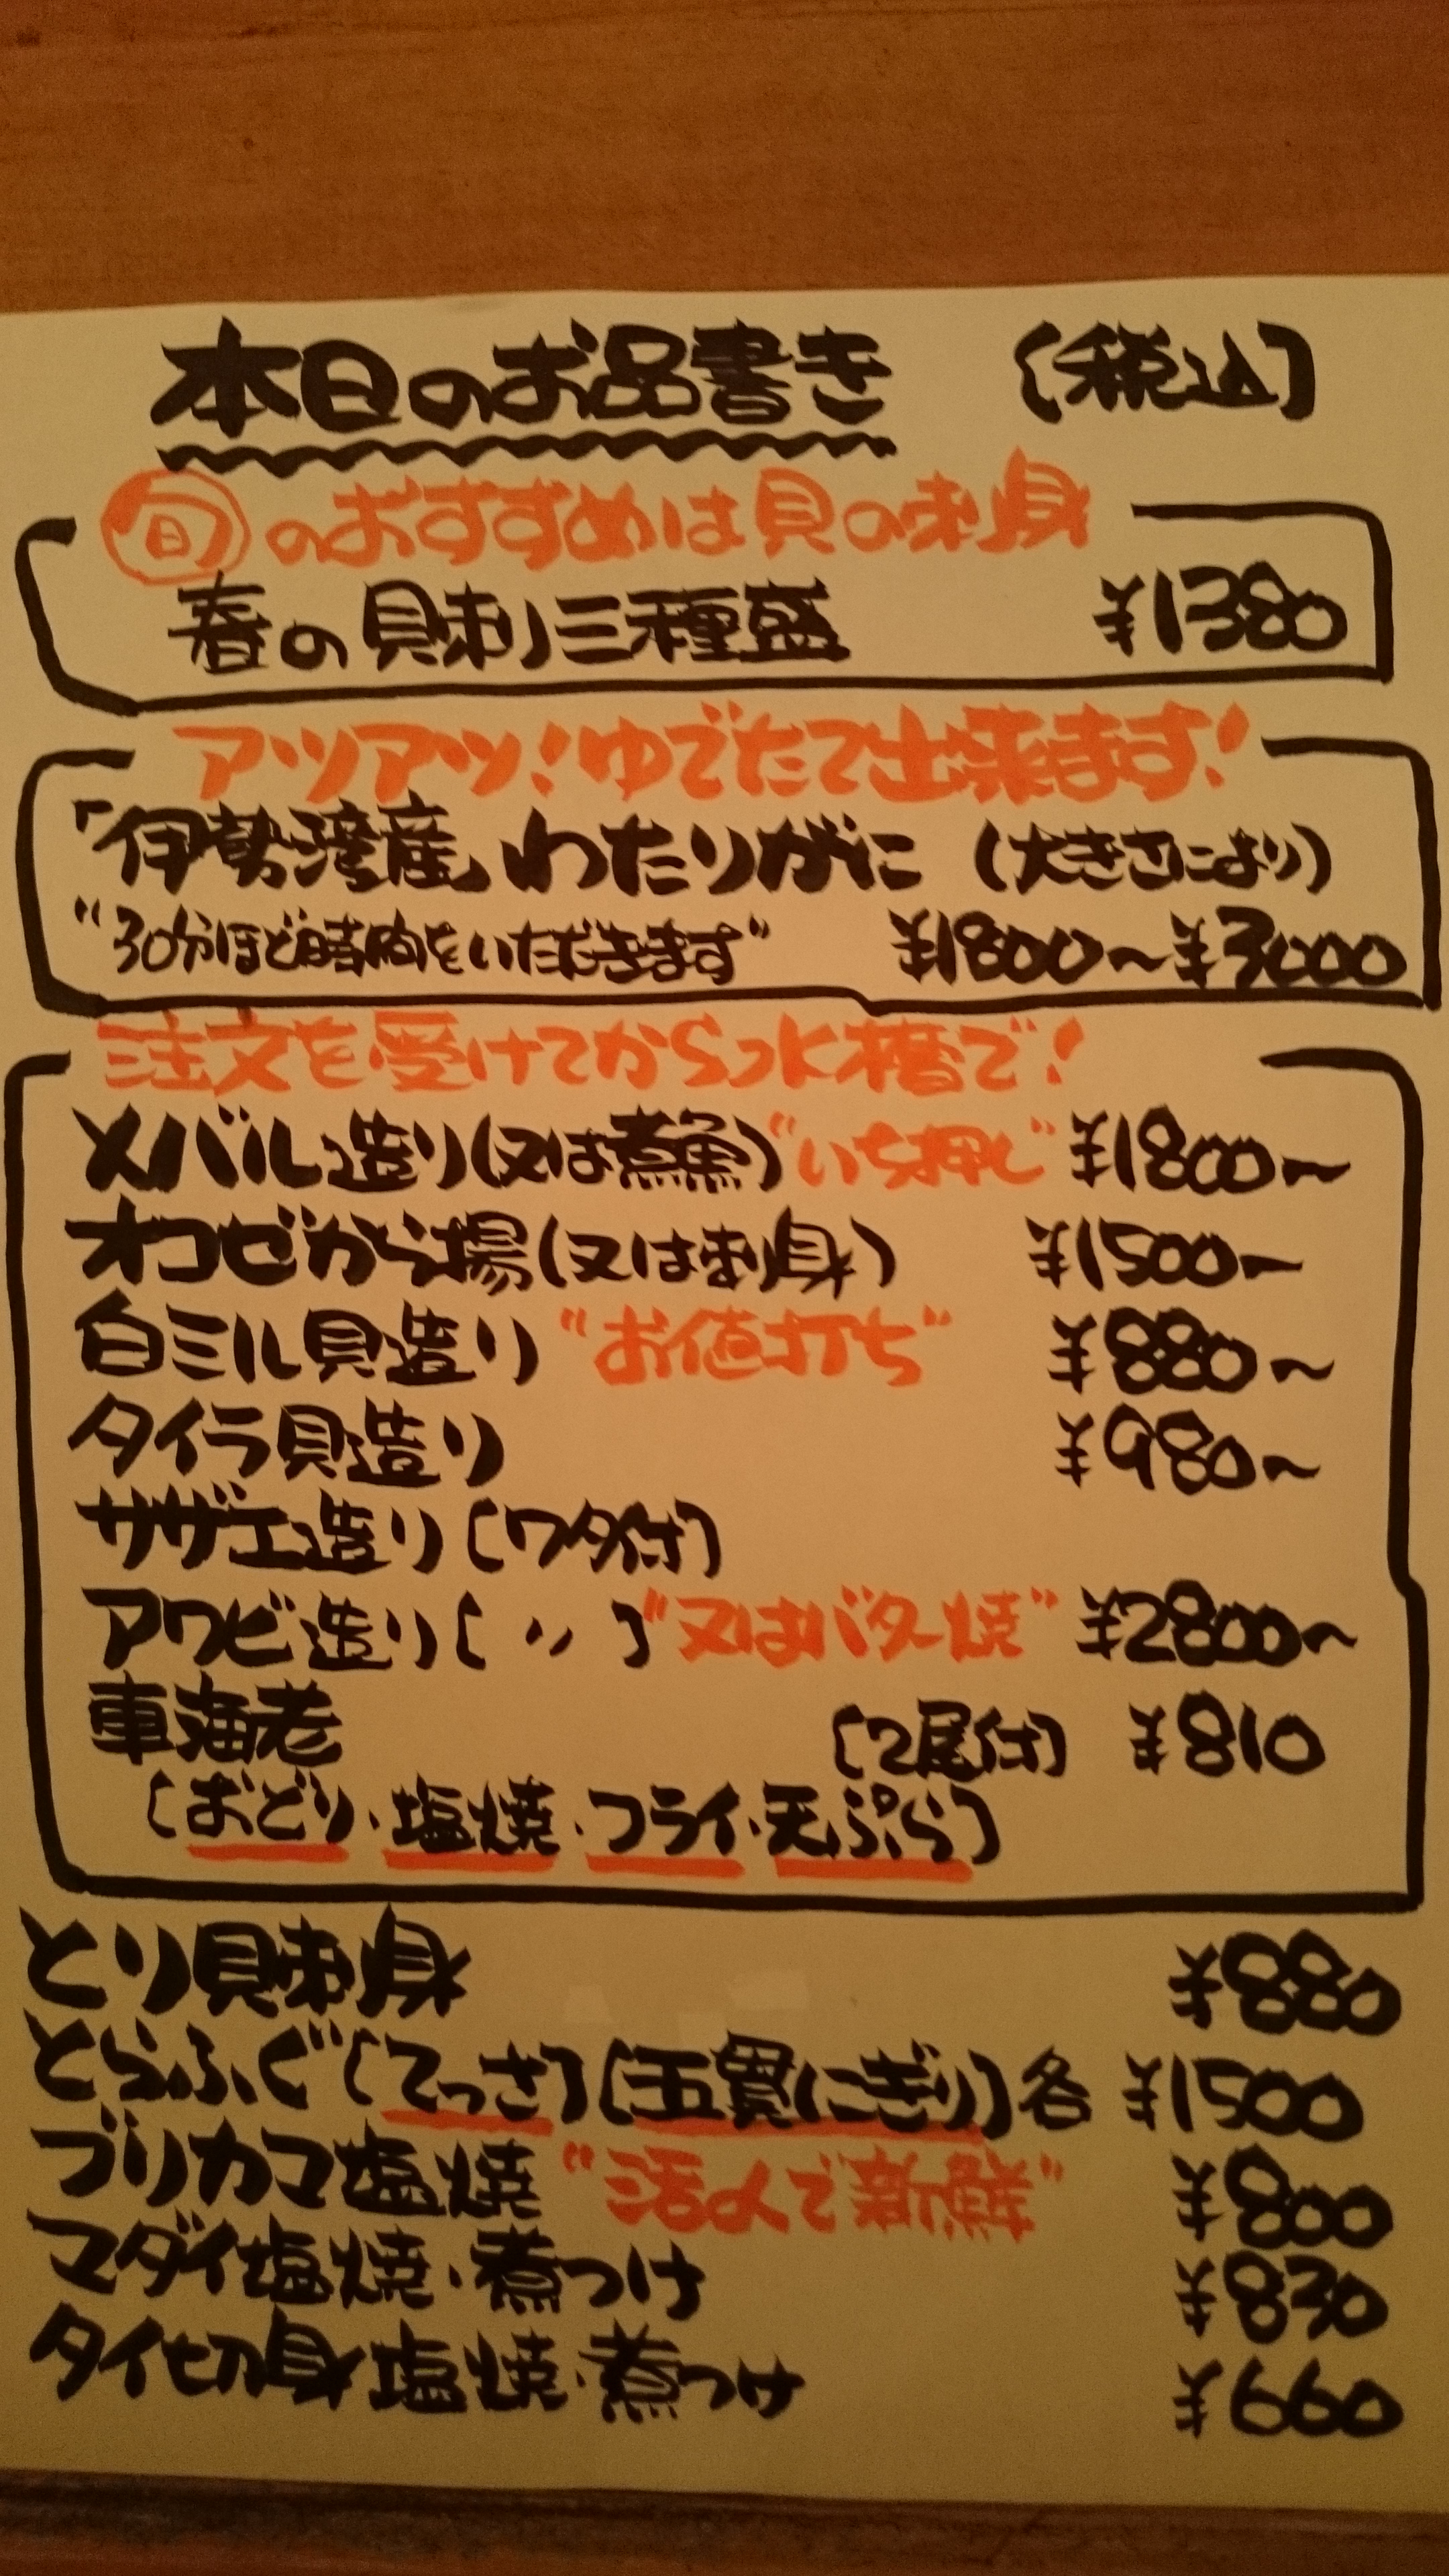 本日のお品書き 〔税込〕
旬のおすすめは貝の刺身
春の貝刺三種盛 ¥1380
アツアツ！ゆでたて出来ます！
「伊勢湾産」わたりがに (大きさにより)
"30分ほど時間をいただきます" ¥1800～¥3000
注文を受けてから水槽で！
メバル造り(又は煮魚)"いち押し" ¥1800～
オコゼから揚(又は刺身) ¥1500～
白ミル貝造り "お値打ち" ¥880～
タイラ貝造り ¥980～
サザエ造り〔ワタ付〕
アワビ造り〔 〃 〕"又はバター焼" ¥2800～
車海老 〔2尾付〕 ¥810
〔おどり・塩焼・フライ・天ぷら〕
とり貝刺身 ¥880
とらふぐ〔てっさ〕〔五貫にぎり〕各 ¥1500
ブリカマ塩焼 "活〆で新鮮" ¥800
マダイ塩焼・煮つけ ¥830
タイ切身塩焼・煮つけ ¥660